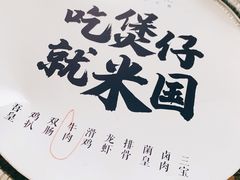 吃煲仔
就米国
吾皇
鸡扒
双肠
牛肉
滑鸡
龙虾
排骨
菌皇
卤肉
三宝